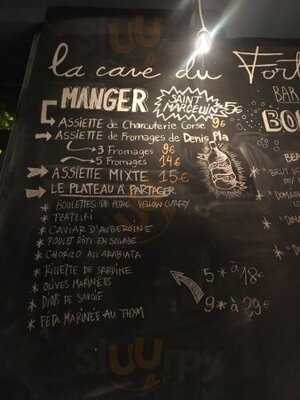 la cave du Fort
BAR
MANGER
SAINT MARCELIN
5€
BO
ASSIETTE de CHARCUTERIE CORSE 9€
ASSIETTE de FROMAGES de DENIS Pla
3 FROMAGES 9€
5 FROMAGES 14€
ASSIETTE MIXTE 15€
LE PLATEAU À PARTAGER
* BOULETTES DE PORC YELLOW CURRY
* CAVIAR D'AUBERGINE
* POULET RÔTI EN SALADE
* CHORIZO ALL'ARABIATA
* RILLETTE DE SARDINE
* OLIVES MARINÉES
* DIOTS DE SAVOIE
* FETA MARINÉE AU THYM
5* à 18€
9* à 29€